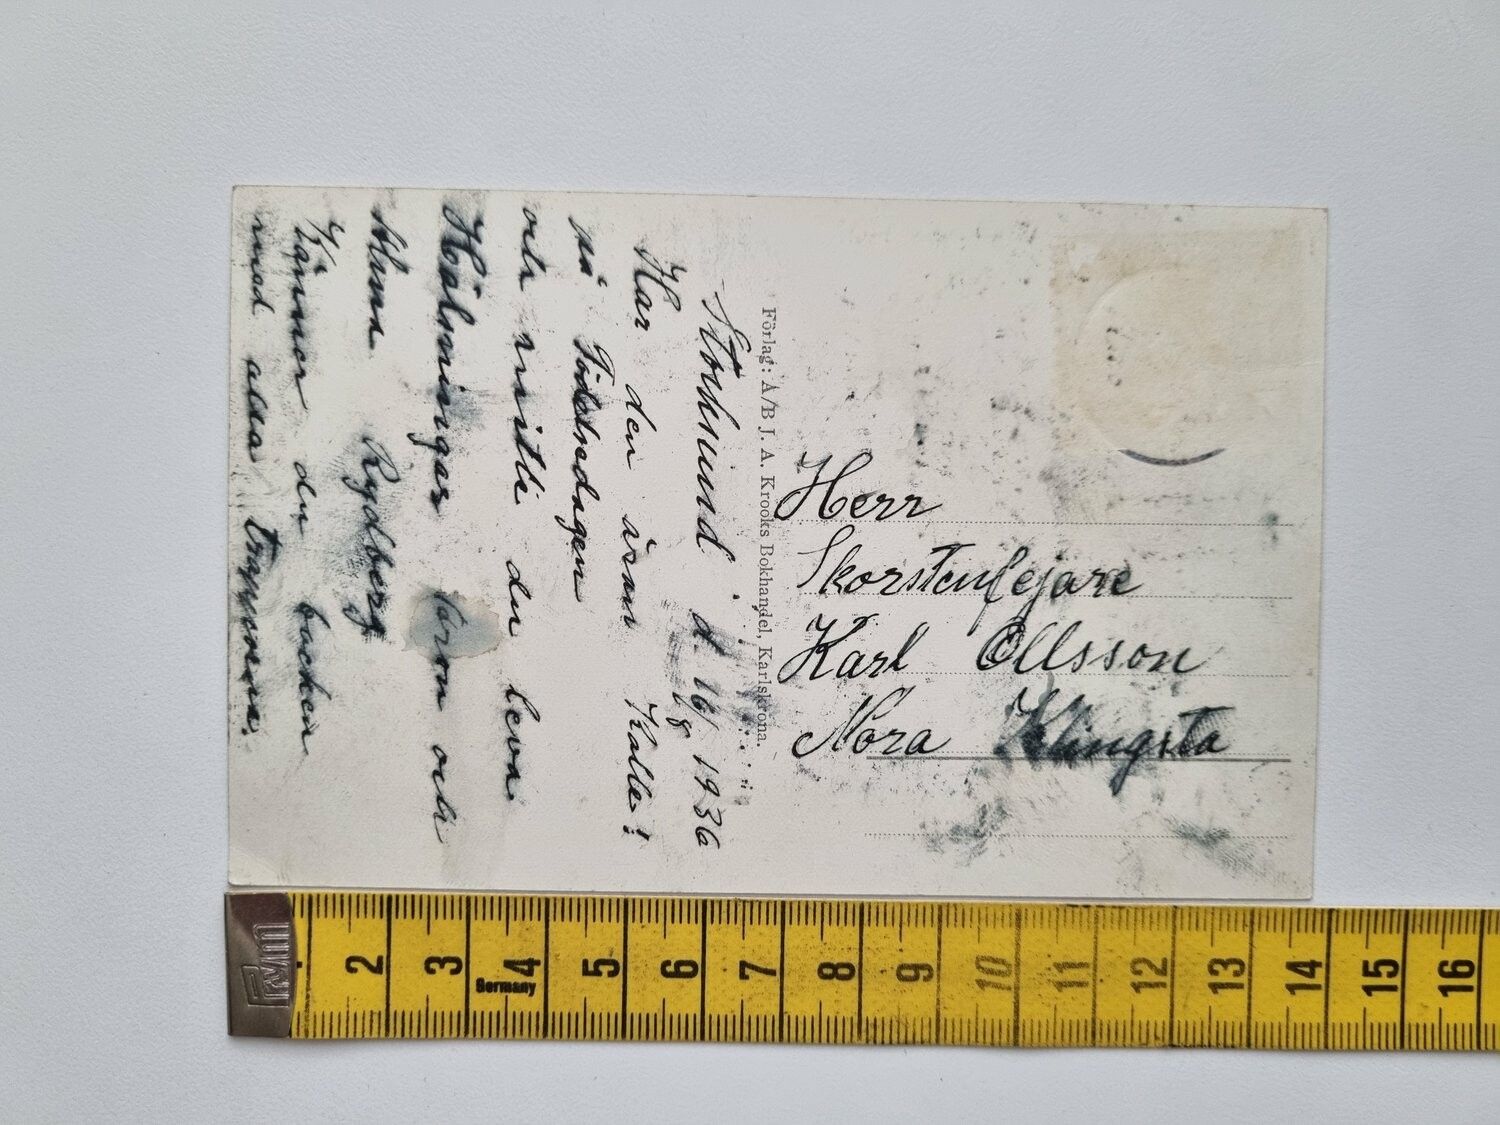 d. 16/8 1936
Har den äran Kalle!
på Födelsedagen
och måtte du leva
Hälsningar från och
Rydberg
Känner du backen
med alla trapporna.
Förlag: A/B J. A. Krooks Bokhandel, Karlskrona.
Herr
Skorstenfejare
Karl Ollsson
Nora Klingsta
PRYM
1 2 3 4 5 6 7 8 9 10 11 12 13 14 15 16
Germany